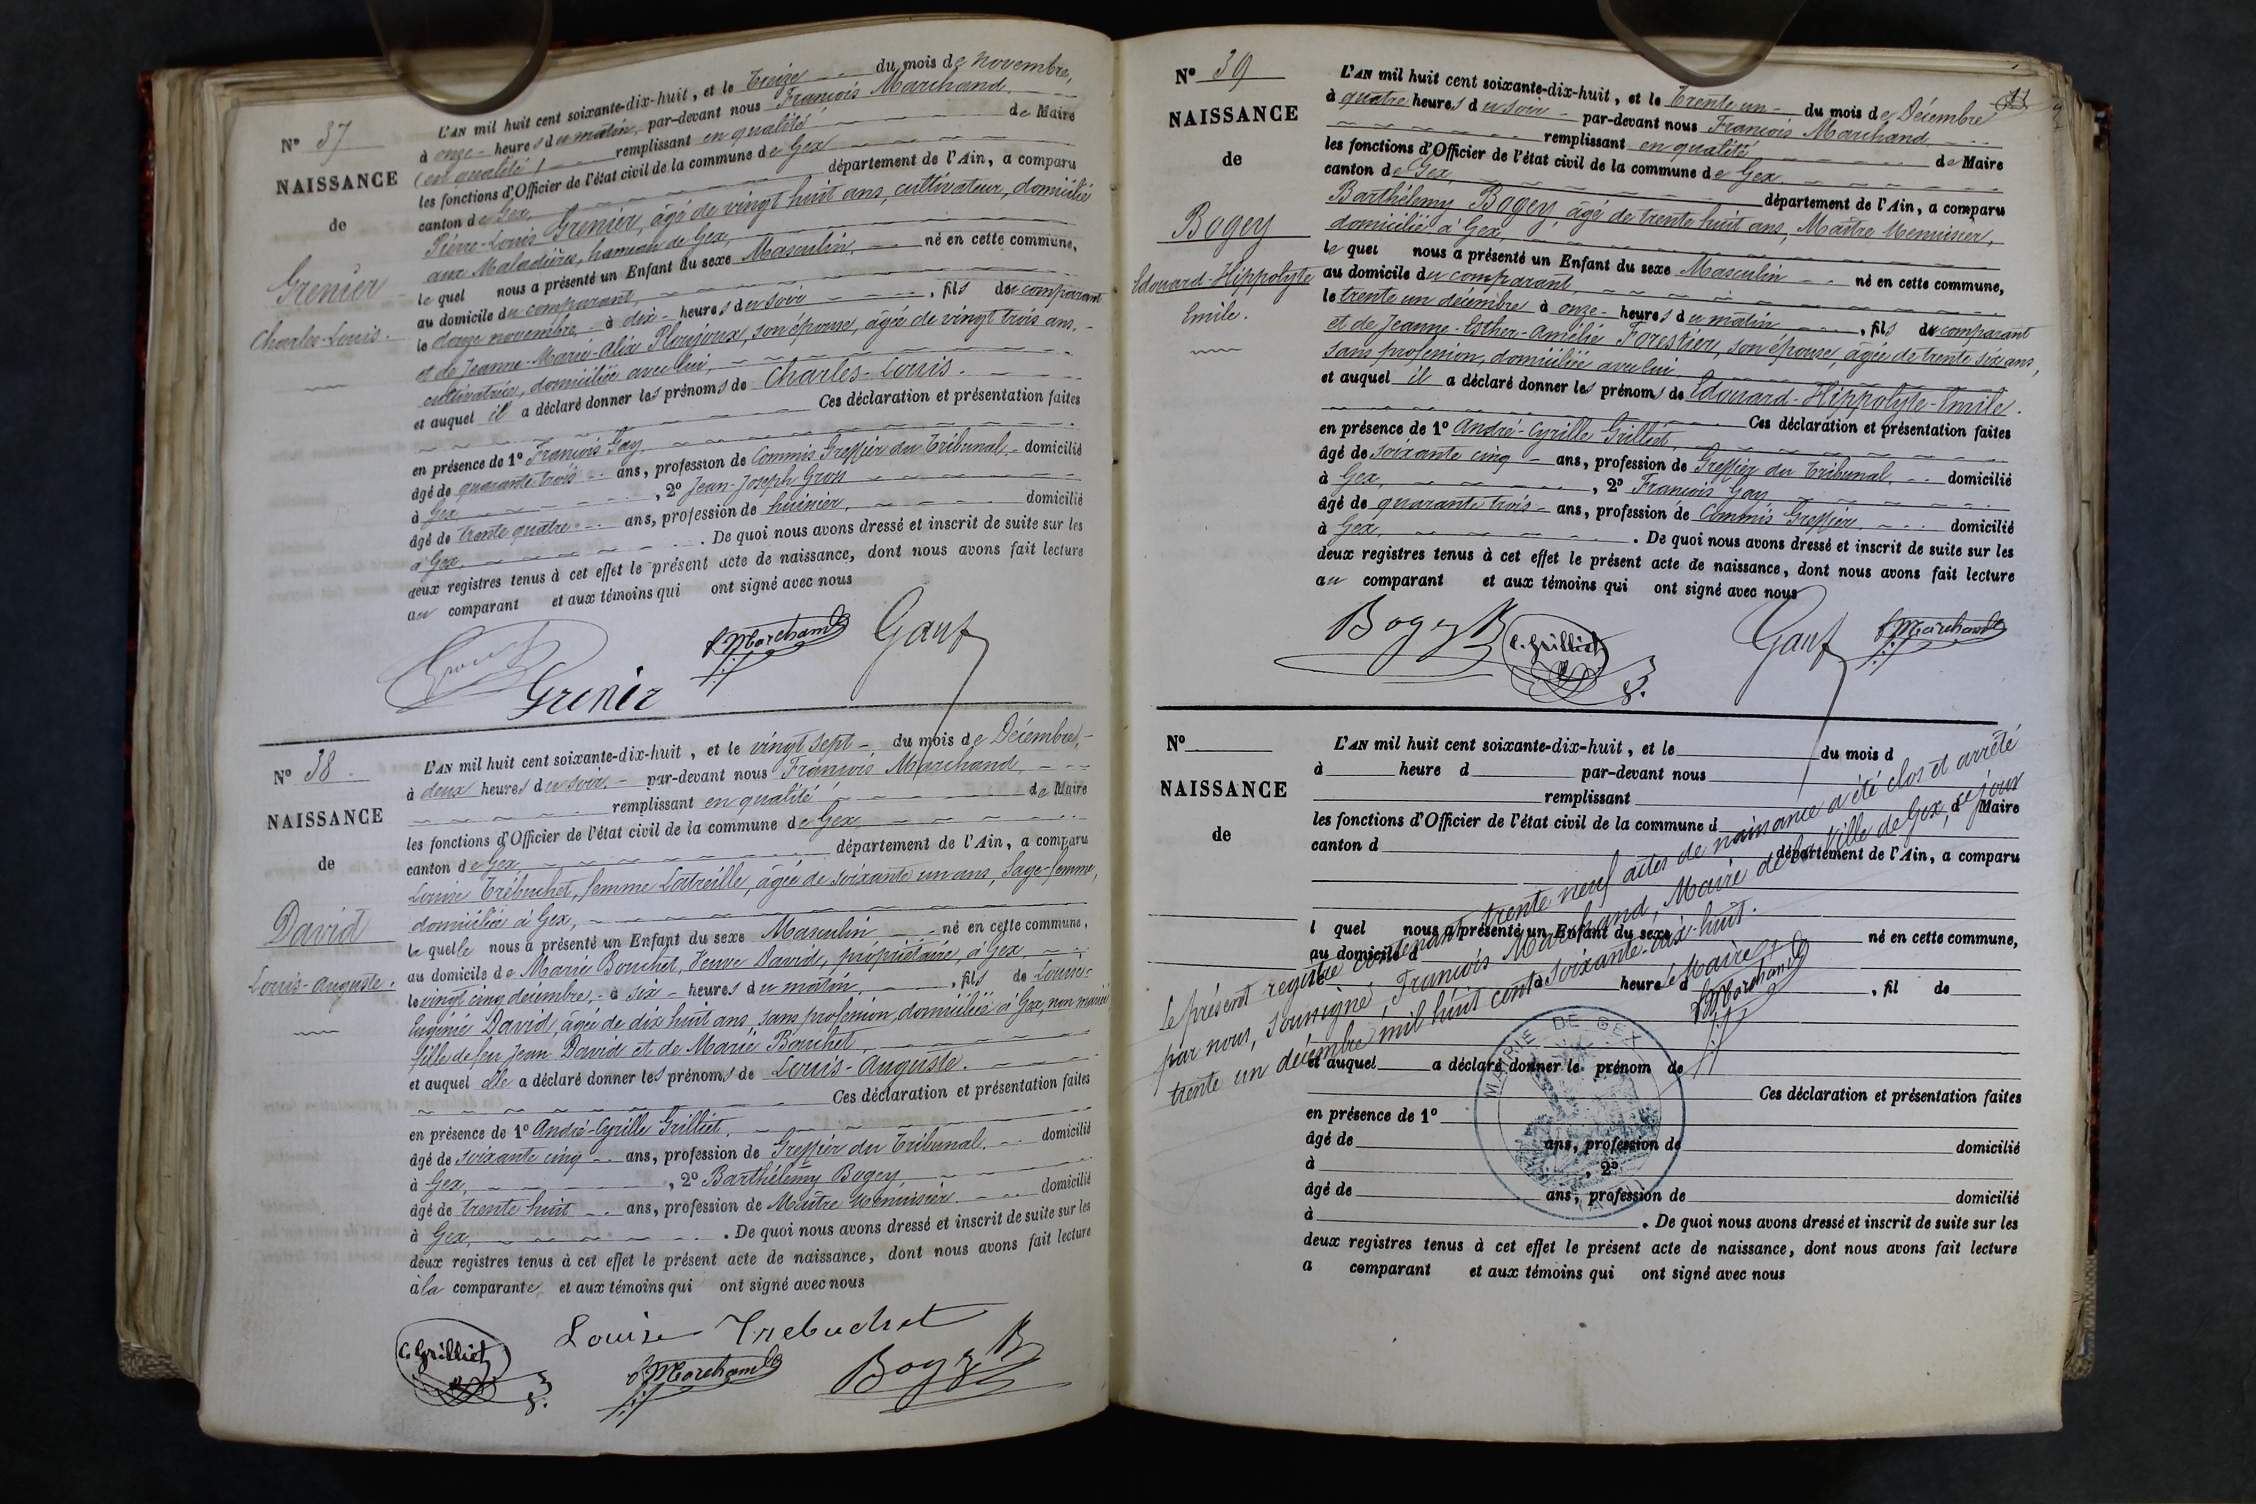 N° 37
NAISSANCE
de
Grenier
Charles-Louis.
L'AN mil huit cent soixante-dix-huit, et le treize du mois de novembre,
à onze heures du matin, par-devant nous François Marchand
(en qualité) remplissant en qualité de Maire
les fonctions d'Officier de l'état civil de la commune de Gex
canton de Gex, département de l'Ain, a comparu
Pierre-Louis Grenier, âgé de vingt huit ans, cultivateur, domicilié
aux Maladières, hameau de Gex,
le quel nous a présenté un Enfant du sexe Masculin, né en cette commune,
au domicile du comparant,
le douze novembre, à dix heures du soir, fils du comparant
et de Jeanne-Marie-Alix son épouse, âgée de vingt trois ans,
cultivatrice, domiciliée avec lui,
et auquel il a déclaré donner les prénoms de Charles-Louis.
Ces déclaration et présentation faites
en présence de 1° François Gay,
âgé de quarante trois ans, profession de Commis Greffier du Tribunal, domicilié
à Gex, 2° Jean-Joseph Gros
âgé de trente quatre ans, profession de huissier, domicilié
à Gex. De quoi nous avons dressé et inscrit de suite sur les
deux registres tenus à cet effet le présent acte de naissance, dont nous avons fait lecture
au comparant et aux témoins qui ont signé avec nous
Grenier F Marchand Gay f
N° 38.
NAISSANCE
de
David
Louis-Auguste.
L'AN mil huit cent soixante-dix-huit, et le vingt sept du mois de Décembre,
à deux heures du soir, par-devant nous François Marchand,
remplissant en qualité de Maire
les fonctions d'Officier de l'état civil de la commune de Gex
canton de Gex, département de l'Ain, a comparu
Louise Trébuchet, femme Latreille, âgée de soixante un ans, Sage-femme,
domiciliée à Gex,
la quelle nous a présenté un Enfant du sexe Masculin né en cette commune,
au domicile de Marie Bouchet, Veuve David, propriétaire, à Gex,
le vingt cinq décembre, à six heures du matin, fils de Louise
Eugénie David, âgée de dix huit ans, sans profession, domiciliée à Gex, non mariée
fille de feu Jean David et de Marie Bouchet,
et auquel elle a déclaré donner les prénoms de Louis-Auguste.
Ces déclaration et présentation faites
en présence de 1° André-Cyrille Grilliet,
âgé de soixante cinq ans, profession de Greffier du Tribunal, domicilié
à Gex, 2° Barthélemy Bogey
âgé de trente huit ans, profession de Maître Menuisier, domicilié
à Gex. De quoi nous avons dressé et inscrit de suite sur les
deux registres tenus à cet effet le présent acte de naissance, dont nous avons fait lecture
à la comparante, et aux témoins qui ont signé avec nous
Louise Trebuchet
C. Grilliet F Marchand Bogey B
N° 39
NAISSANCE
de
Bogey
Edouard-Hippolyte
Emile.
L'AN mil huit cent soixante-dix-huit, et le trente un du mois de Décembre
à quatre heures du soir par-devant nous François Marchand
remplissant en qualité de Maire
les fonctions d'Officier de l'état civil de la commune de Gex
canton de Gex, département de l'Ain, a comparu
Barthélemy Bogey, âgé de trente huit ans, Maître Menuisier,
domicilié à Gex,
le quel nous a présenté un Enfant du sexe Masculin né en cette commune,
au domicile du comparant,
le trente un décembre à onze heures du matin, fils du comparant
et de Jeanne-Esther-Amélie Forestier, son épouse, âgée de trente six ans,
sans profession, domiciliée avec lui,
et auquel il a déclaré donner les prénoms de Edouard-Hippolyte-Emile.
Ces déclaration et présentation faites
en présence de 1° André-Cyrille Grilliet,
âgé de soixante cinq ans, profession de Greffier du Tribunal, domicilié
à Gex, 2° François Gay
âgé de quarante trois ans, profession de Commis Greffier domicilié
à Gex. De quoi nous avons dressé et inscrit de suite sur les
deux registres tenus à cet effet le présent acte de naissance, dont nous avons fait lecture
au comparant et aux témoins qui ont signé avec nous
Bogey B C. Grilliet Gay f F Marchand
N°
NAISSANCE
de
L'AN mil huit cent soixante-dix-huit, et le du mois d
à heure d par-devant nous
remplissant d Maire
les fonctions d'Officier de l'état civil de la commune d
canton d département de l'Ain, a comparu
l quel nous a présenté un Enfant du sexe né en cette commune,
au domicile d
heure d , fil de
et auquel a déclaré donner le prénom de
Ces déclaration et présentation faites
en présence de 1°
âgé de ans, profession de domicilié
à , 2°
âgé de ans, profession de domicilié
à . De quoi nous avons dressé et inscrit de suite sur les
deux registres tenus à cet effet le présent acte de naissance, dont nous avons fait lecture
a comparant et aux témoins qui ont signé avec nous
Le présent registre contenant trente neuf actes de naissance a été clos et arrêté
par nous, soussigné, François Marchand, Maire de la Ville de Gex, ce jour
trente un décembre mil huit cent soixante-dix-huit.
Le Maire
F Marchand
MAIRIE DE GEX
(AIN)